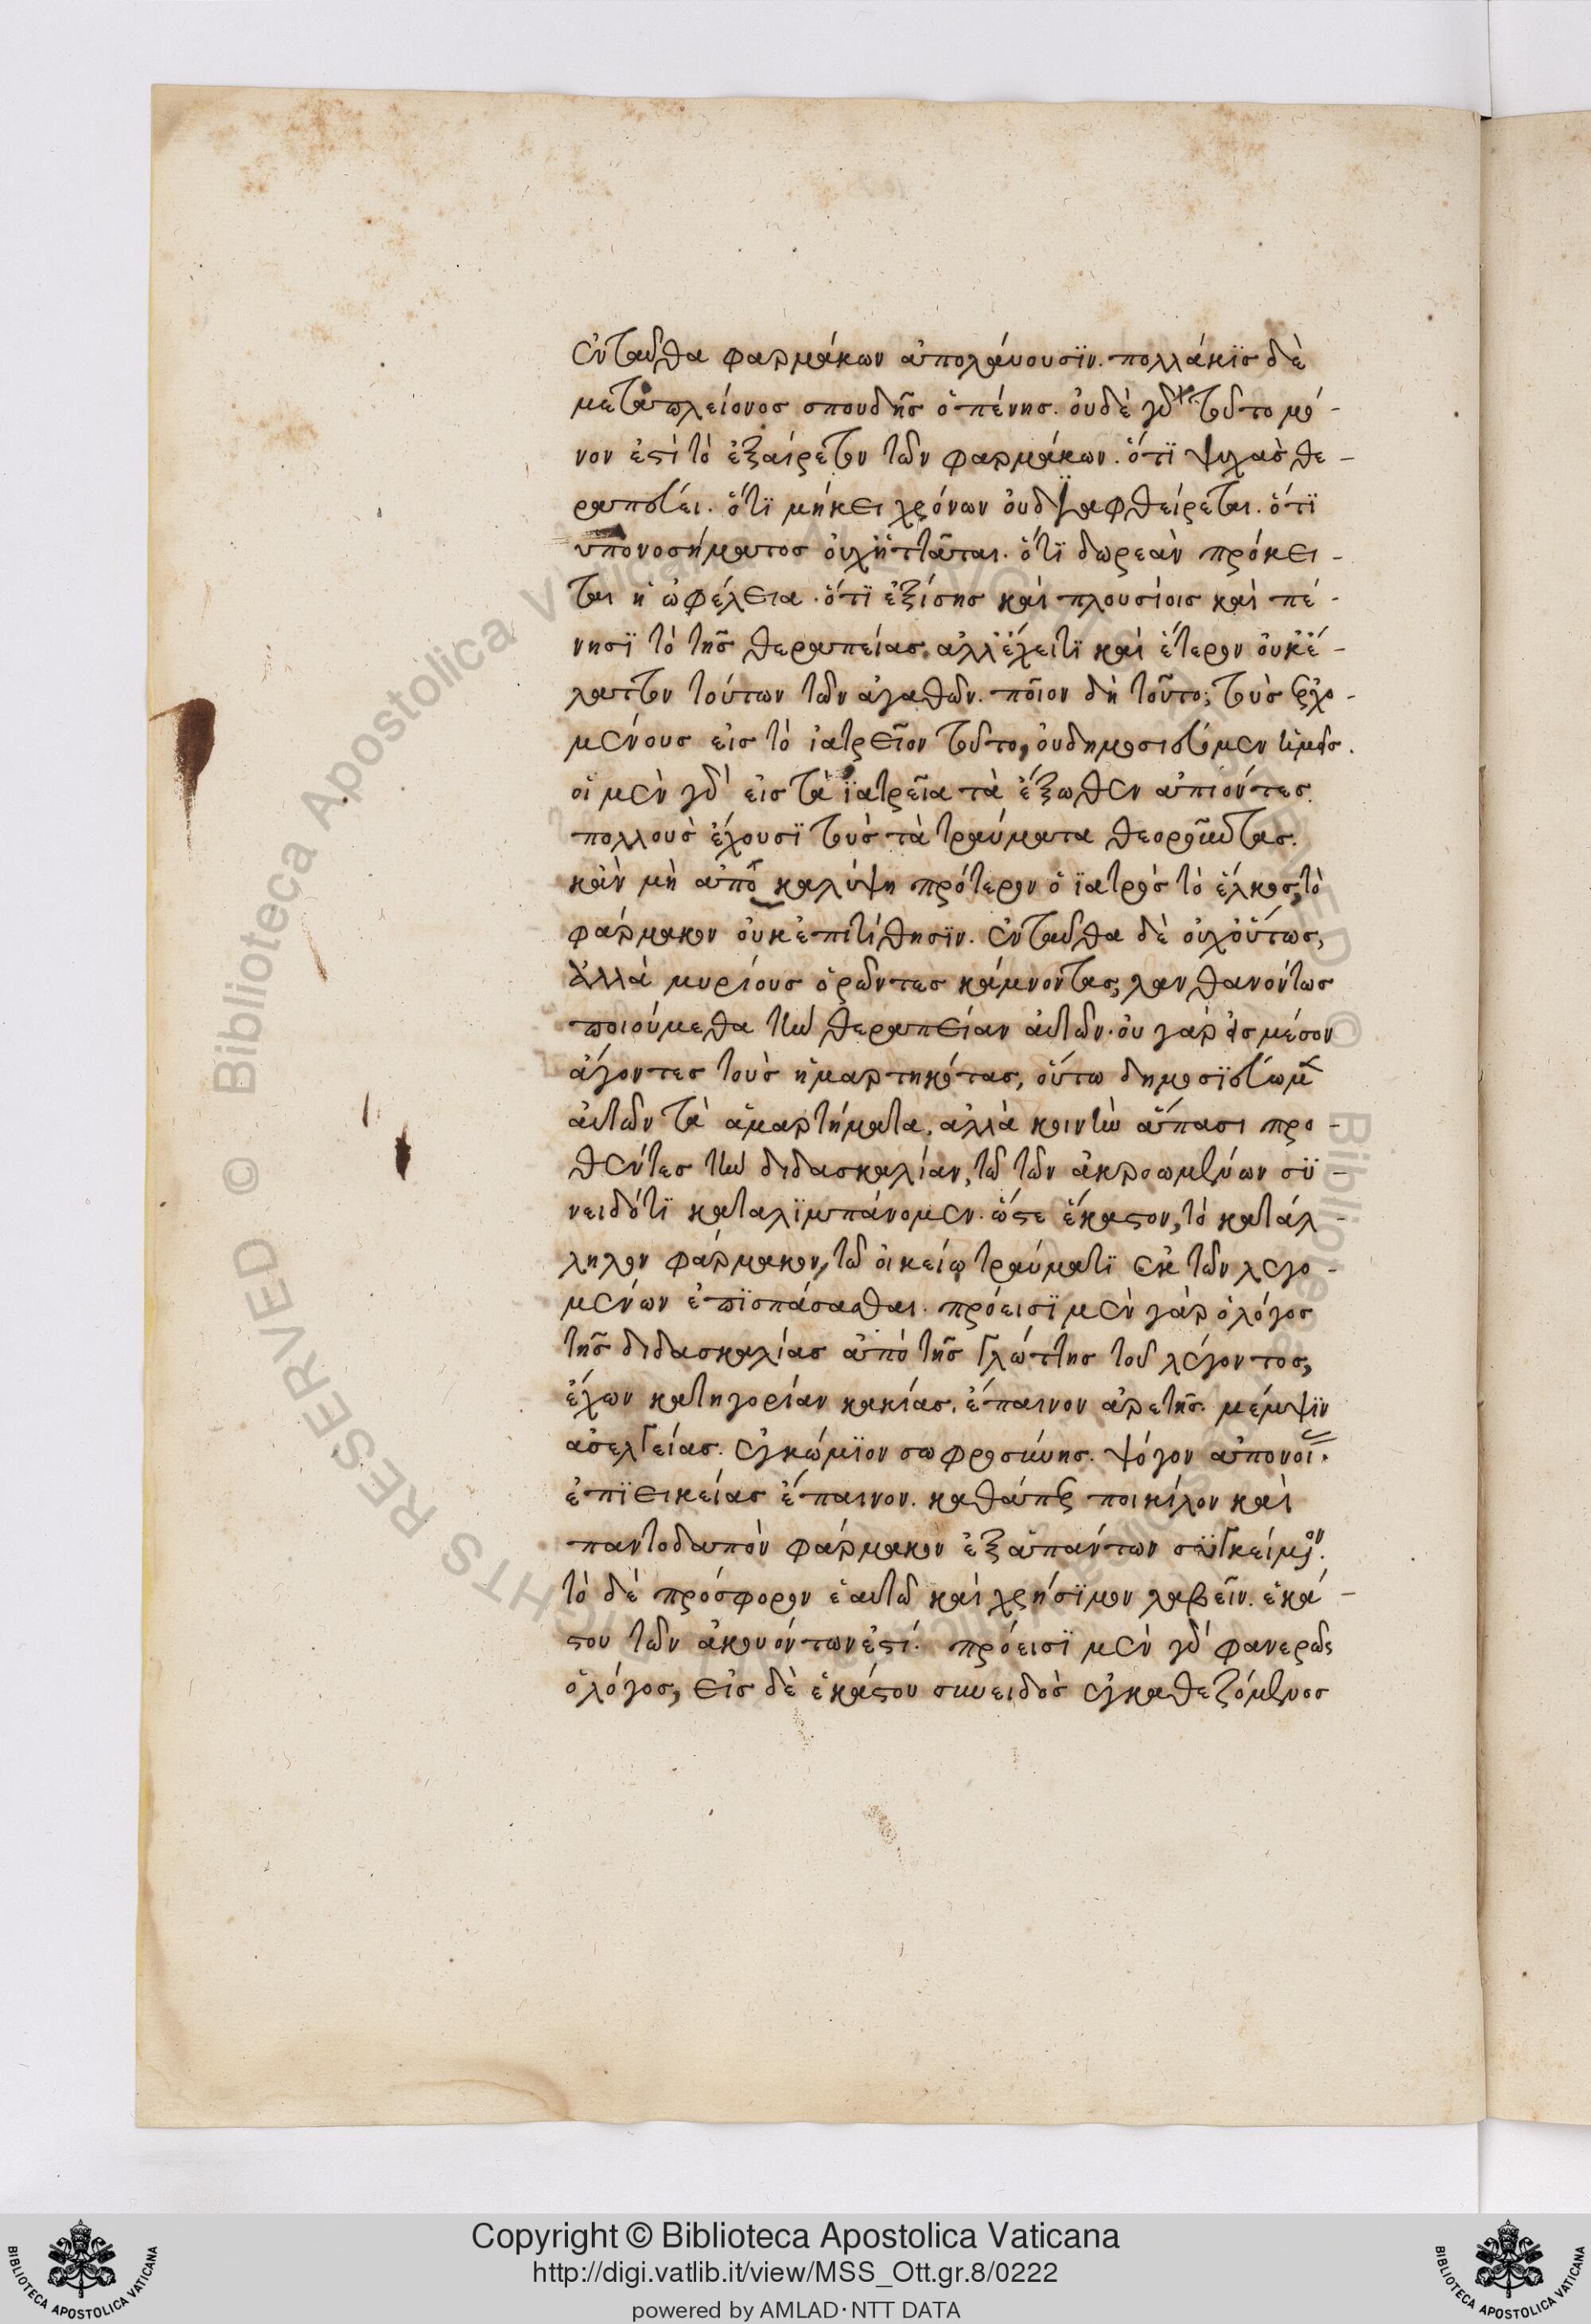 ἐνταῦθα φαρμάκων ἀπολάυουσϊν. πολλάκϊς δὲ
μετὰ πλείονος σπουδῆς ὁ πένης. οὐδὲ γὰρ τοῦτο μό-
νον ἐστὶ τὸ ἐξαίρετον τῶν φαρμάκων. ὅτϊ ψυχὰς θε-
ραπεύει. ὅτϊ μήκει χρόνων οὐ διαφθείρεται. ὅτϊ
ὑπὸ νοσήματος οὐχ ἡττᾶται. ὅτϊ δωρεὰν πρόκει-
ται ἡ ὠφέλεια. ὅτϊ ἐξίσης καὶ πλουσίοις καὶ πέ-
νησϊ τὸ τῆς θεραπείας. ἀλλ' ἔχει τϊ καὶ ἕτερον οὐκ ἔ-
λαττον τούτων τῶν ἀγαθῶν. ποῖον δὴ τοῦτο; τοὺς ἐρχο-
μένους εἰς τὸ ἰατρεῖον τοῦτο, οὐ δημοσιεύομεν ἡμεῖς.
οἱ μὲν γὰρ εἰς τὰ ϊατρεῖα τὰ ἔξωθεν ἀπιόντες
πολλοὺς ἔχουσϊ τοὺς τὰ τραύματα θεοροῦντας.
κἂν μὴ ἀποκαλύψη πρότερον ὁ ϊατρὸς τὸ ἕλκος, τὸ
φάρμακον οὐκ ἐπιτίθησϊν. ἐνταῦθα δὲ οὐχ οὕτως,
ἀλλὰ μυρίους ὁρῶντες κάμνοντας, λανθανόντως
ποιούμεθα τὴν θεραπείαν αὐτῶν. οὐ γὰρ εἰς μέσον
ἄγοντες τοὺς ἡμαρτηκότας, οὕτω δημοσϊεύωμεν
αὐτῶν τὰ ἁμαρτήματα. ἀλλὰ κοινὴν ἅπασι προ-
θέντες τὴν διδασκαλίαν, τῶ τῶν ἀκροωμένων σϋ-
νειδότϊ καταλϊμπάνομεν. ὥστε ἕκαστον, τὸ κατάλ-
ληλον φάρμακον, τῶ οἰκείω τραύματϊ ἐκ τῶν λεγο-
μένων ἐπϊσπάσασθαι. πρόεισϊ μὲν γὰρ ὁ λόγος
τῆς διδασκαλίας ἀπὸ τῆς γλώττης τοῦ λέγοντος,
ἔχων κατηγορίαν κακίας. ἔπαινον ἀρετῆς. μέμψϊν
ἀσελγείας. ἐγκώμϊον σωφροσύνης. ψόγον ἀπονοί.
ἐπϊεικείας ἔπαινον. καθάπερ ποικίλον καὶ
παντοδαπὸν φάρμακον ἐξ ἁπάντων σϋγκείμενον.
τὸ δὲ πρόσφορον ἑαυτῶ καὶ χρήσϊμον λαβεῖν. ἑκά-
στου τῶν ἀκουόντων ἐστί. πρόεισϊ μὲν γὰρ φανερῶς
ὁ λόγος, εἰς δὲ ἑκάστου συνειδὸς ἐγκαθεζόμενος
Copyright © Biblioteca Apostolica Vaticana
http://digi.vatlib.it/view/MSS_Ott.gr.8/0222
powered by AMLAD·NTT DATA